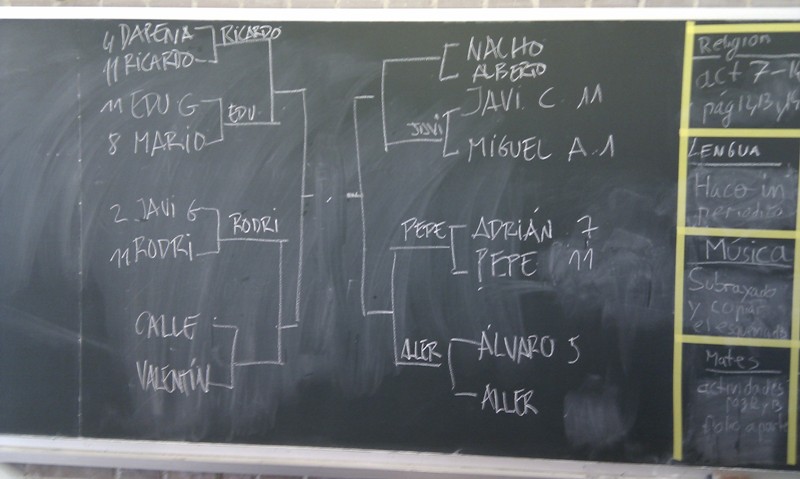 4 DAPENA
11 RICARDO
RICARDO
11 EDU G
8 MARIO
EDU
2 JAVI G
11 RODRI
RODRI
CALLE
VALENTÍN
NACHO
ALBERTO
JAVI C. 11
MIGUEL A. 1
JAVI
ADRIÁN 7
PEPE 11
PEPE
ÁLVARO 5
ALLER
ALLER
Religion
act 7-14
pág 12, 13 y 14
LENGUA
Haco in
periodico
Música
Subrayado
y copiar
el esquema
Mates
actividades